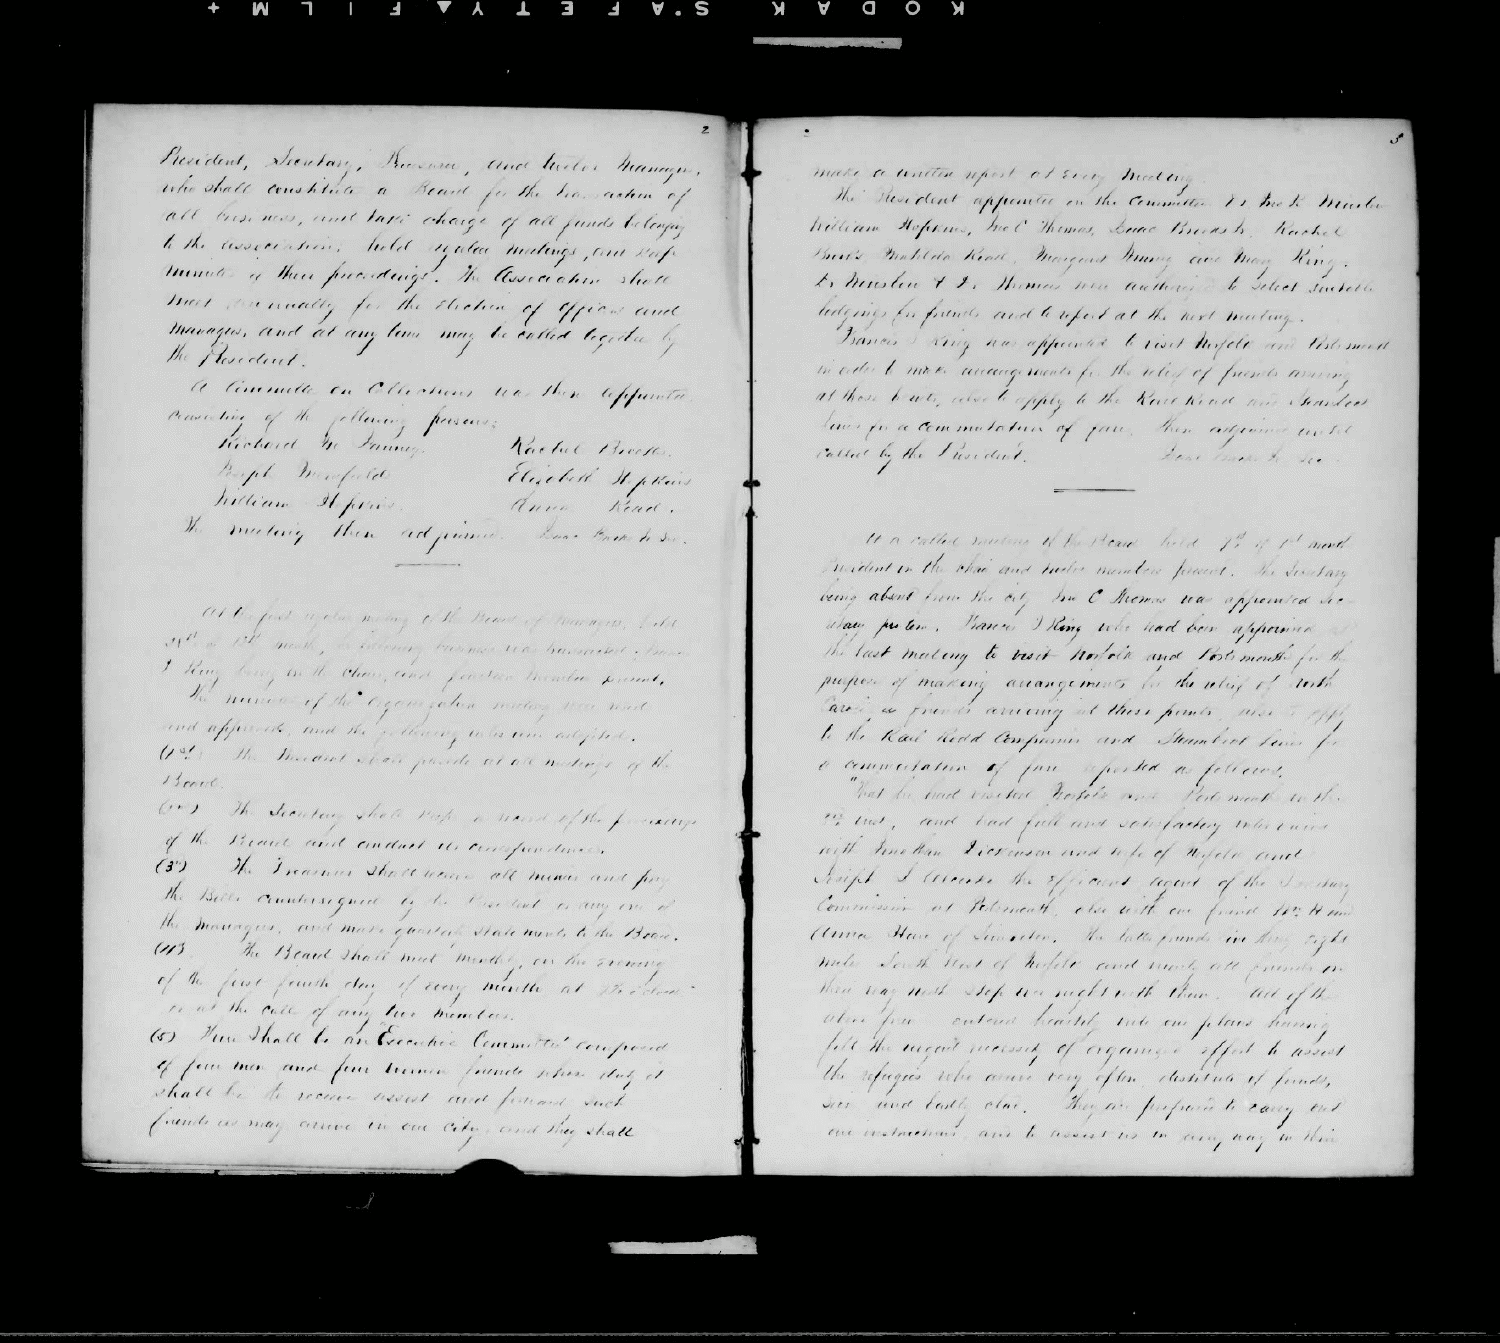 KODAK SAFETY FILM +
2
President, Secretary, Treasurer, and twelve Managers,
who shall constitute a Board for the transaction of
all business, and take charge of all funds belonging
to the association; hold regular meetings, and keep
minutes of their proceedings. The Association shall
meet annually for the election of officers and
managers, and at any time may be called together by
the President.
A Committee on Collections was then appointed
consisting of the following persons:
Richard M Janney. Rachel Brooks.
Joseph Merrefield Elizabeth Hopkins
William Hopkins. Anna Read.
The meeting then adjourned. Isaac Brooks Jr Sec.
At the first regular meeting of the Board of Managers, held
12th month, the following business was transacted. Francis
T King being in the chair, and fourteen members present.
The minutes of the organization meeting were read
and approved, and the following rules were adopted.
(1st) The President shall preside at all meetings of the
Board.
(2d) The Secretary shall keep a record of the proceedings
of the Board and conduct its correspondence.
(3d) The Treasurer shall receive all monies and pay
the Bills countersigned by the President or any one of
the Managers, and make quarterly statements to the Board.
(4th) The Board shall meet monthly, on the evening
of the first fourth day of every month at o'clock
or at the call of any two members.
(5) There shall be an "Executive Committee" composed
of four men and four women friends whose duty it
shall be to receive assist and forward such
friends as may arrive in our city, and they shall
3
make a written report at every meeting.
The President appointed on the Committee Dr. Jno R Winslow
William Hopkins, Jno C Thomas, Isaac Brooks Jr. Rachel
Brooks Matilda Read, Margaret and Mary King.
Dr Winslow & Dr Thomas were authorised to select suitable
lodgings for friends and to report at the next meeting.
Francis T King was appointed to visit Norfolk and Portsmouth
in order to make arrangements for the relief of friends arriving
at those points, also to apply to the Rail Road and Steamboat
lines for a commutation of fare. Then adjourned until
called by the President. Isaac Brooks Jr Sec.
At a called meeting of the Board held of 1st month
President in the chair and twelve members present. The Secretary
being absent from the city Jno C Thomas was appointed Sec-
retary pro tem. Francis T King who had been appointed at
the last meeting to visit Norfolk and Portsmouth for the
purpose of making arrangements for the relief of North
Carolina friends arriving at those points, also to apply
to the Rail Road Companies and Steamboat lines for
a commutation of fare reported as follows.
"That he had visited Norfolk and Portsmouth on the
inst, and had full and satisfactory interviews
with Jonathan Dickenson and wife of Norfolk and
Joseph the efficient agent of the Sanitary
Commission at Portsmouth, also with our friend Wm H and
Anna Hare of. The latter friends live thirty eight
miles South West of Norfolk and nearly all friends on
their way north stop one night with them. All of the
above four entered heartily into our plans having
felt the urgent necessity of organized effort to assist
the refugees who arrive very often destitute of funds,
sick and badly clad. They are prepared to carry out
our instructions, and to assist us in any way in their